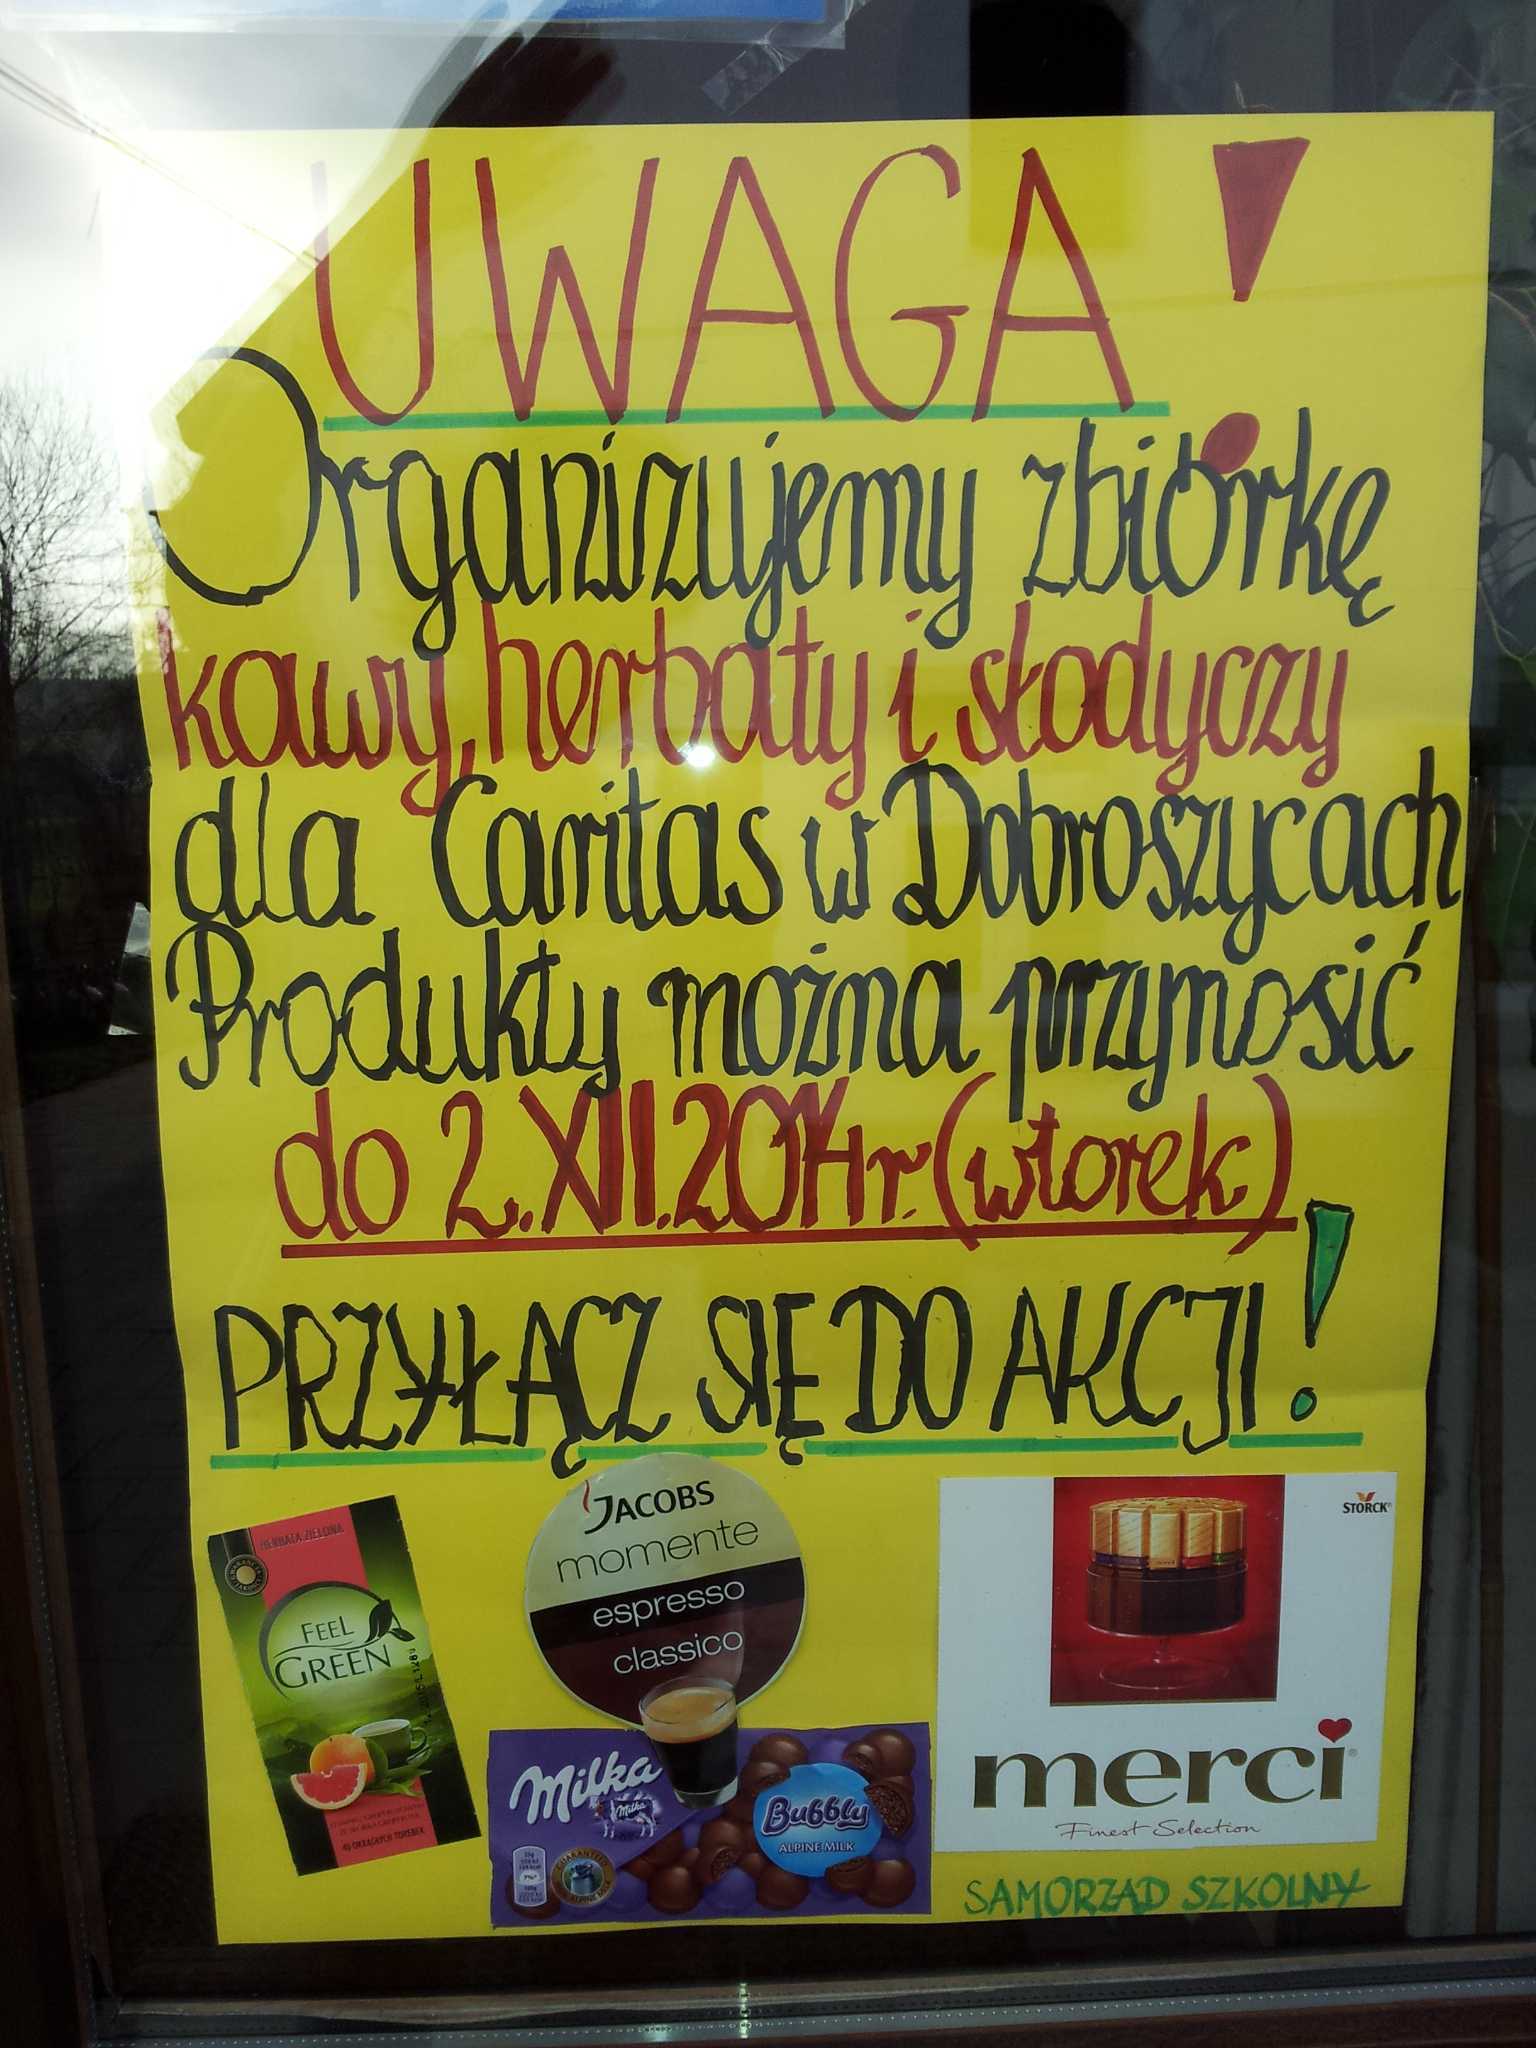 UWAGA!
Organizujemy zbiórkę
kawy, herbaty i słodyczy
dla Caritas w Dobroszycach
Produkty można przynosić
do 2.XII.2014r. (wtorek)
PRZYŁĄCZ SIĘ DO AKCJI!
HERBATA ZIELONA
FEEL
GREEN
40 OKRĄGŁYCH TOREBEK
JACOBS
momente
espresso
classico
Milka
Milka
Bubbly
ALPINE MILK
STORCK
merci
Finest Selection
SAMORZĄD SZKOLNY